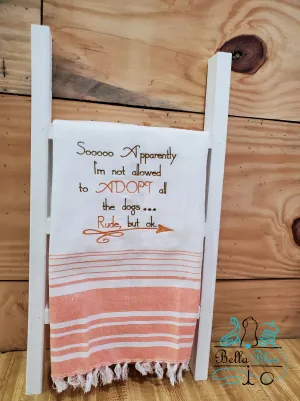 Sooooo Apparently
I'm not allowed
to ADOPT all
the dogs...
Rude, but ok.
Bella Blue